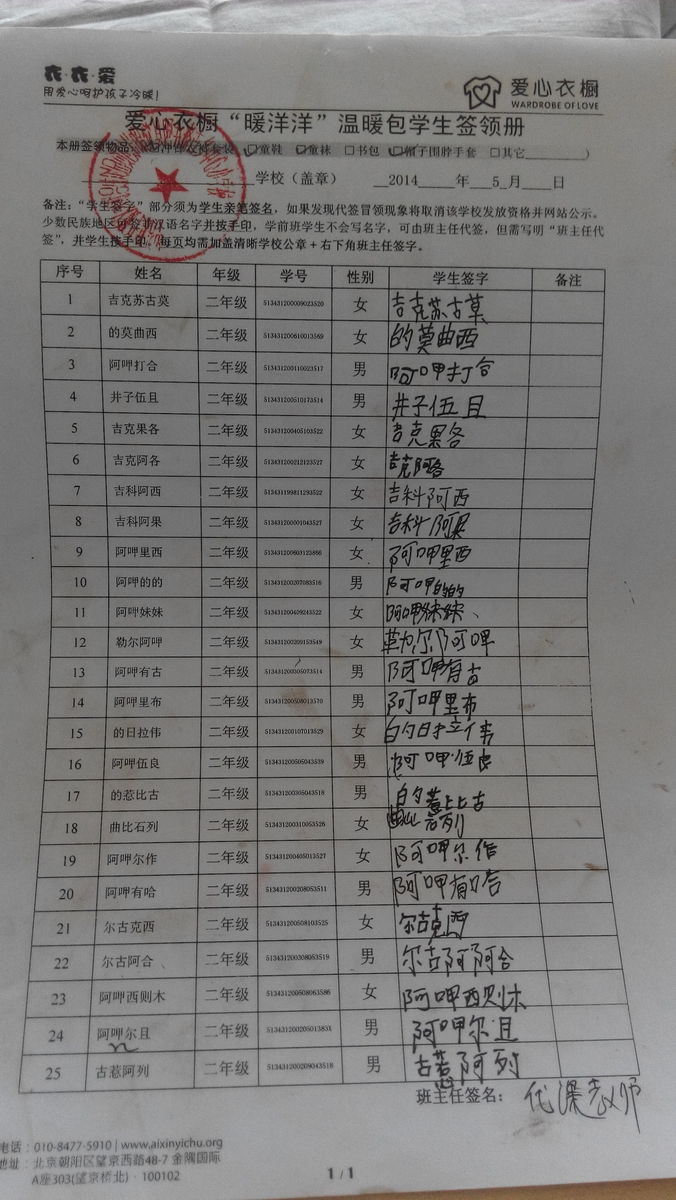 衣·衣·爱
用爱心呵护孩子冷暖!
爱心衣橱
WARDROBE OF LOVE
爱心衣橱“暖洋洋”温暖包学生签领册
本册签领物品: 童鞋 童袜 □书包 帽子围脖手套 □其它__________)
学校(盖章) __2014____年__5_月____日
备注:“学生签字”部分须为学生亲笔签名,如果发现代签冒领现象将取消该学校发放资格并网站公示。
少数民族地区可签非汉语名字并按手印,学前班学生不会写名字,可由班主任代签,但需写明“班主任代
签”,并学生按手印。每页均需加盖清晰学校公章+右下角班主任签字。
序号 姓名 年级 学号 性别 学生签字 备注
1 吉克苏古莫 二年级 513431200009023520 女 吉克苏古草
2 的莫曲西 二年级 513431200610013569 女 的莫曲西
3 阿呷打合 二年级 513431200110023517 男 阿呷打合
4 井子伍且 二年级 513431200510173514 男 井子伍且
5 吉克果各 二年级 513431200405103522 女 吉克果各
6 吉克阿各 二年级 513431200212123527 女 吉克阿各
7 吉科阿西 二年级 513431199811293522 女 吉科阿西
8 吉科阿果 二年级 513431200001043527 女 吉科阿果
9 阿呷里西 二年级 513431200603123866 女 阿呷里西
10 阿呷的的 二年级 513431200207083516 男 阿呷的的
11 阿呷妹妹 二年级 513431200409243522 女 阿呷妹妹
12 勒尔阿呷 二年级 513431200209153549 女 勒尔阿呷
13 阿呷有古 二年级 513431200305073514 男 阿呷有古
14 阿呷里布 二年级 513431200508013570 男 阿呷里布
15 的日拉伟 二年级 513431200107013529 女 的日拉伟
16 阿呷伍良 二年级 513431200505043539 男 阿呷伍良
17 的惹比古 二年级 513431200305043518 男 的惹比古
18 曲比石列 二年级 513431200310053526 女 曲比石列
19 阿呷尔作 二年级 513431200405013527 女 阿呷尔作
20 阿呷有哈 二年级 513431200208053511 男 阿呷有哈
21 尔古克西 二年级 513431200508103525 女 尔古克西
22 尔古阿合 二年级 513431200308053519 男 尔古阿阿合
23 阿呷西则木 二年级 513431200508063586 女 阿呷西则木
24 阿呷尔且 二年级 51343120020501383X 男 阿呷尔且
25 古惹阿列 二年级 513431200209043518 男 古惹阿列
班主任签名: 代课老师
电话:010-8477-5910 | www.aixinyichu.org
地址:北京朝阳区望京西路48-7 金隅国际
A座303(望京桥北)·100102
1 / 1